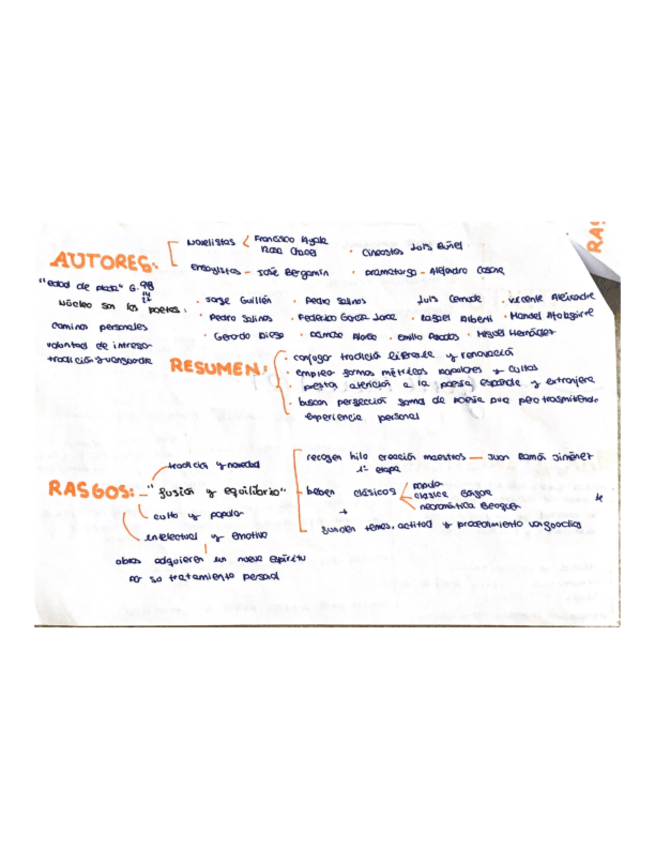 RAS
novelistas Francisco Ayala
Rosa Chacel
· Cineastas Luis Buñel
AUTORES:
ensayistas - José Bergamín
· Dramaturgo - Alejandro Casona
"edad de plata" G. 98
14
27
núcleo son los poetas:
· Jorge Guillén · Pedro Salinas Luis Cernuda · Vicente Aleixandre
· Pedro Salinas · Federico García Lorca · Rafael Alberti · Manuel Altolaguirre
caminos personales
· Gerardo Diego · Dámaso Alonso · Emilio Prados · Miguel Hernández
voluntad de integrar
tradición y vanguardia
RESUMEN:
· conjugar tradición literaria y renovación
· emplea formas métricas populares y cultas
presta atención a la poesía española y extranjera
· buscan perfección formal de poesía pura pero trasmitiendo
experiencia personal
tradición y novedad
RASGOS: - "fusión y equilibrio"
culto y popular
intelectual y emotivo
obras adquieren un nuevo espíritu
por su tratamiento personal
recogen hilo creación maestros - Juan Ramón Jiménez
1ª etapa
beben clásicos popular
clásica
neoromántica Becquer
+
funden temas, actitud y procedimiento vanguardias